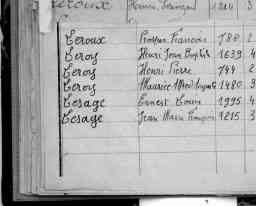 Leroux
Leroux Prosper Francois 780 2
Leroy Henri Jean Baptiste 1639 4
Leroy Henri Pierre 744 2
Leroy Maurice 1480 3
Lesage Ernest Louis 1995 4
Lesage Jean Marie François 1215 3